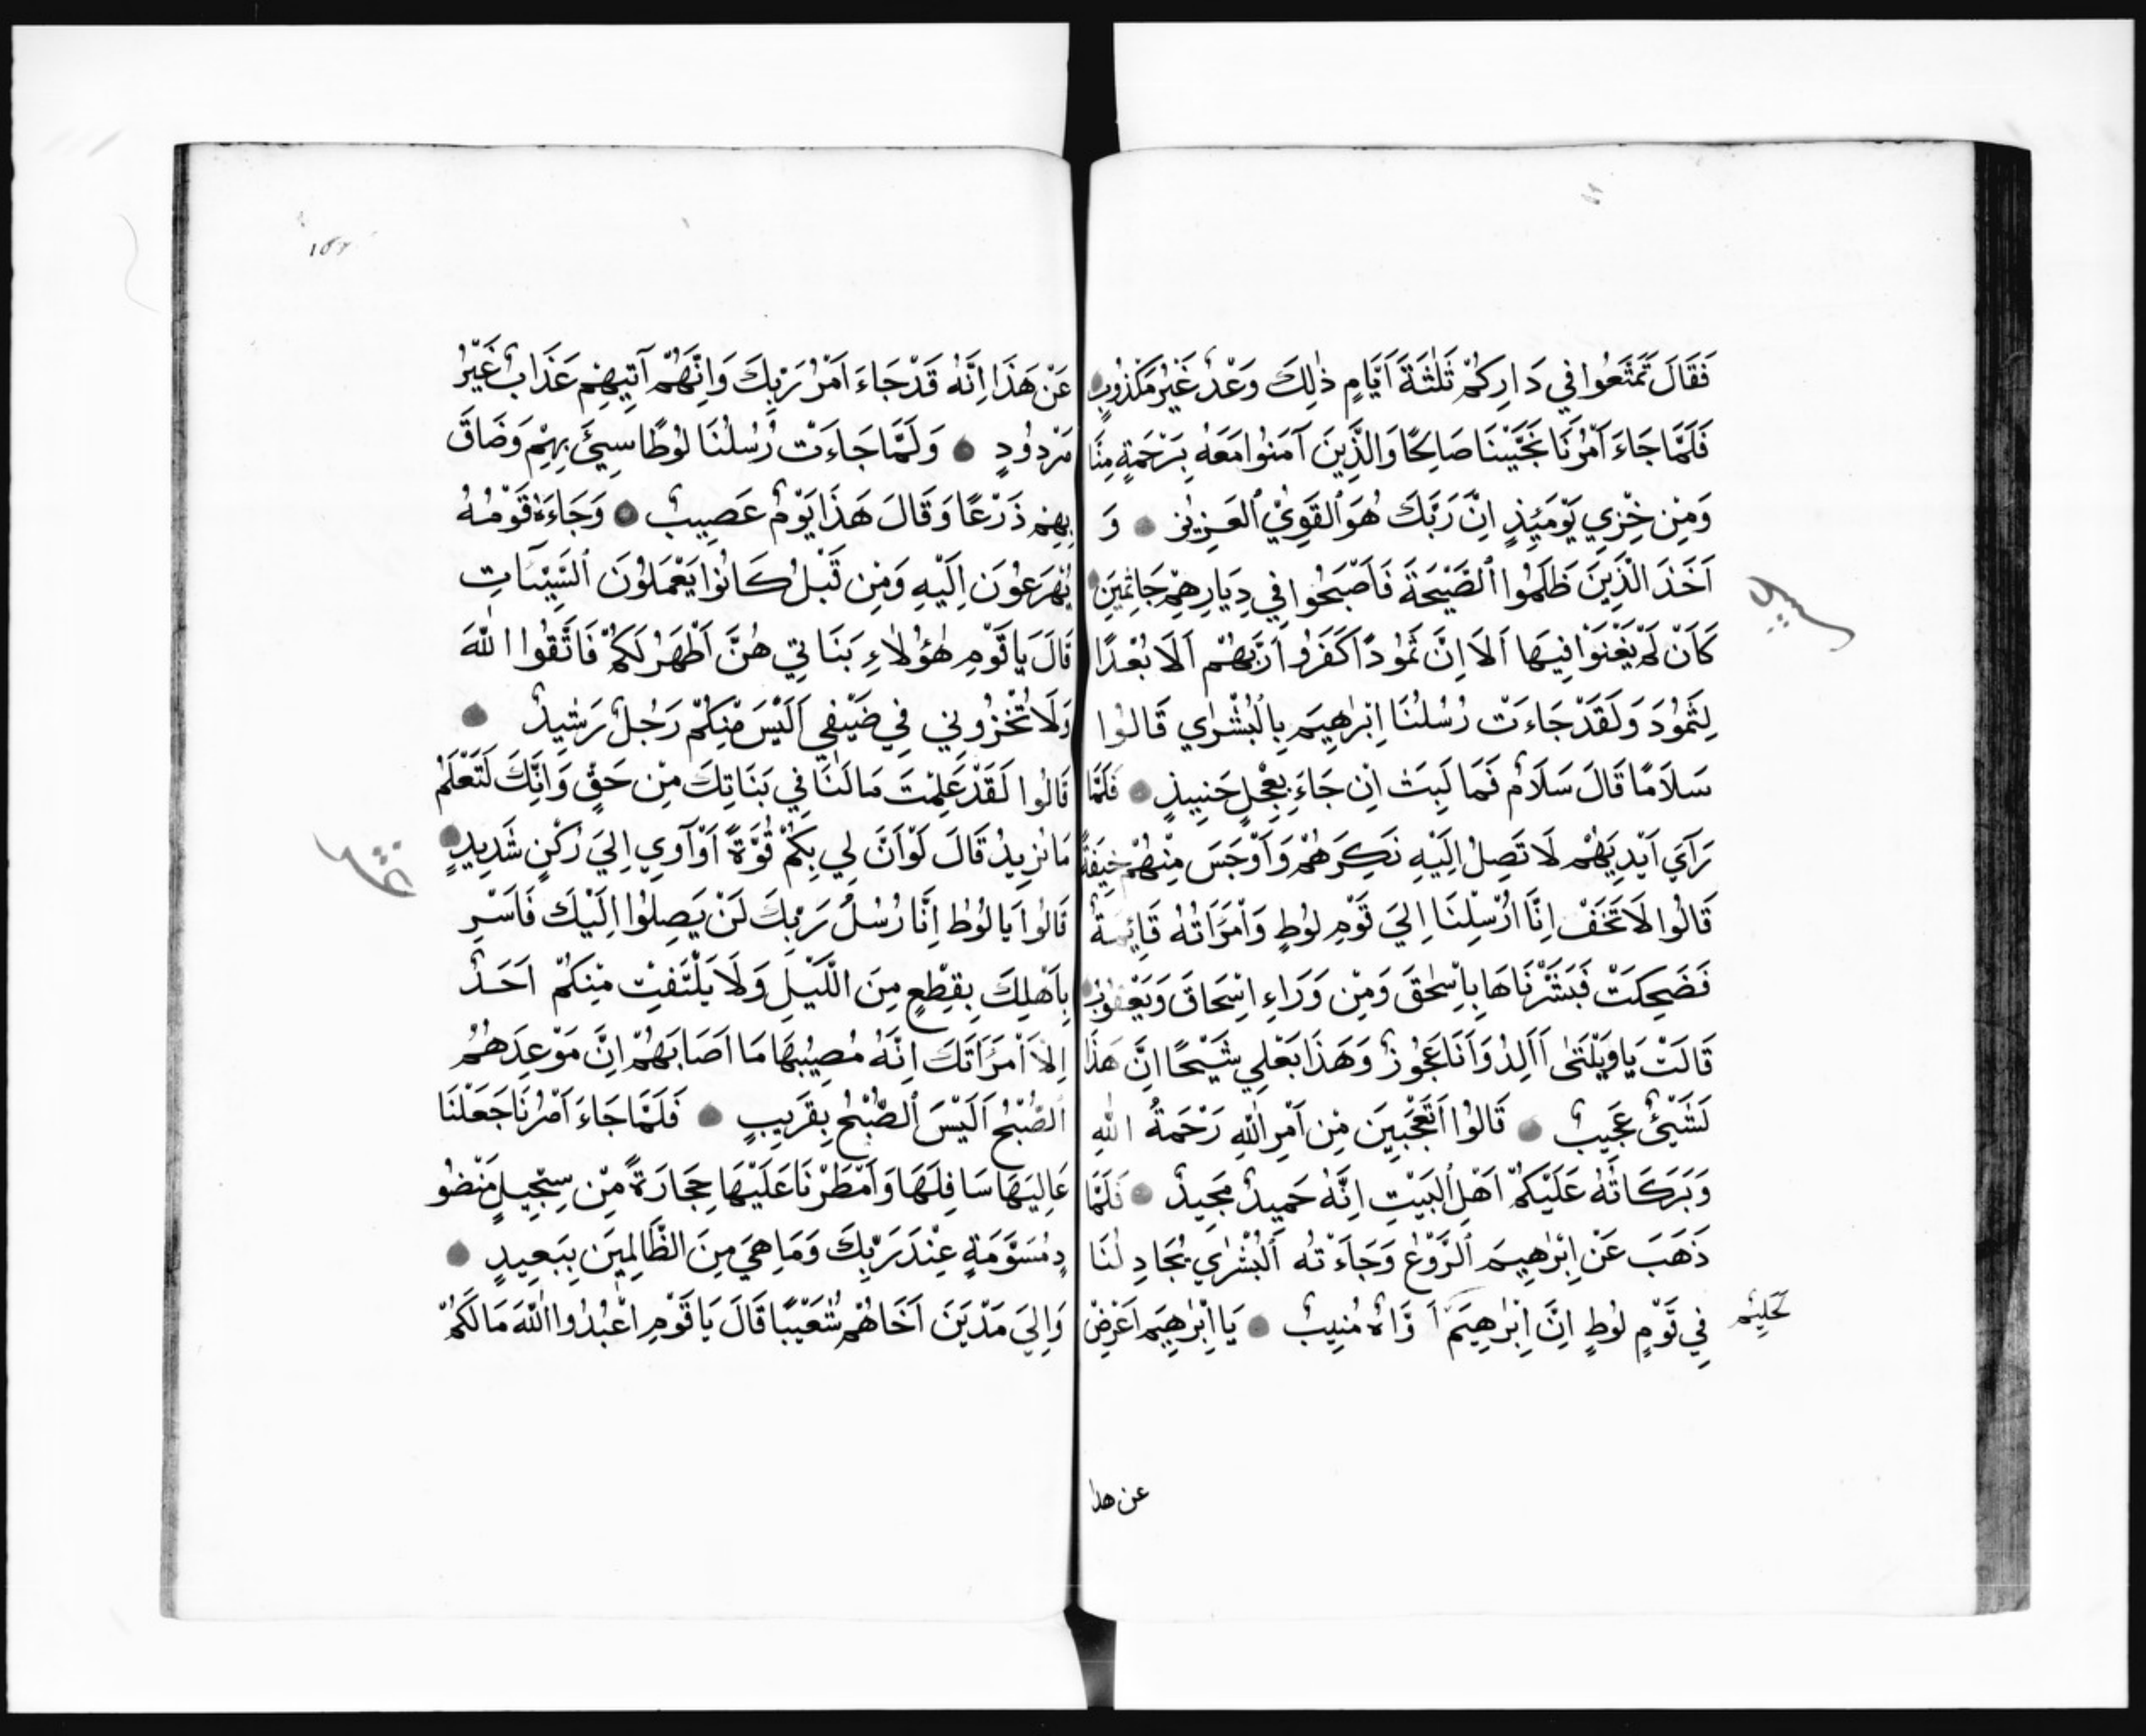 فَقَالَ تَمَتَّعُوا فِي دَارِكُمْ ثَلٰثَةَ اَيَّامٍ ذٰلِكَ وَعْدٌ غَيْرُ مَكْذُوبٍ
فَلَمَّا جَاءَ اَمْرُنَا نَجَّيْنَا صَالِحًا وَالَّذِينَ آمَنُوا مَعَهُ بِرَحْمَةٍ مِنَّا
وَمِنْ خِزْيِ يَوْمَئِذٍ اِنَّ رَبَّكَ هُوَ الْقَوِيُّ الْعَزِيزُ وَ
اَخَذَ الَّذِينَ ظَلَمُوا الصَّيْحَةَ فَاَصْبَحُوا فِي دِيَارِهِمْ جَاثِمِينَ
كَاَنْ لَمْ يَغْنَوْا فِيهَا اَلَا اِنَّ ثَمُودًا كَفَرُوا رَبَّهُمْ اَلَا بُعْدًا
لِثَمُودَ وَلَقَدْ جَاءَتْ رُسُلُنَا اِبْرٰهِيمَ بِالْبُشْرٰي قَالُوا
سَلَامًا قَالَ سَلَامٌ فَمَا لَبِثَ اَنْ جَاءَ بِعِجْلٍ حَنِيذٍ فَلَمَّا
رَآي اَيْدِيَهُمْ لَا تَصِلُ اِلَيْهِ نَكِرَهُمْ وَاَوْجَسَ مِنْهُمْ خِيفَةً
قَالُوا لَا تَخَفْ اِنَّا اُرْسِلْنَا اِلٰي قَوْمِ لُوطٍ وَامْرَاَتُهُ قَائِمَةٌ
فَضَحِكَتْ فَبَشَّرْنَاهَا بِاِسْحٰقَ وَمِنْ وَرَاءِ اِسْحَاقَ وَيَعْقُوبُ
قَالَتْ يَا وَيْلَتٰي اَاَلِدُ وَاَنَا عَجُوزٌ وَهَذَا بَعْلِي شَيْخًا اِنَّ هَذَا
لَشَيْئٌ عَجِيبٌ قَالُوا اَتَعْجَبِينَ مِنْ اَمْرِ اللّٰهِ رَحْمَةُ اللّٰهِ
وَبَرَكَاتُهُ عَلَيْكُمْ اَهْلَ الْبَيْتِ اِنَّهُ حَمِيدٌ مَجِيدٌ فَلَمَّا
ذَهَبَ عَنْ اِبْرٰهِيمَ الرَّوْعُ وَجَاءَتْهُ الْبُشْرٰي يُجَادِلُنَا
فِي قَوْمِ لُوطٍ اِنَّ اِبْرٰهِيمَ اَوَّاهٌ مُنِيبٌ يَا اِبْرٰهِيمُ اَعْرِضْ
لَحَلِيمٌ
عن هذا
عَنْ هَذَا اِنَّهُ قَدْ جَاءَ اَمْرُ رَبِّكَ وَاِنَّهُمْ آتِيهِمْ عَذَابٌ غَيْرُ
مَرْدُودٍ وَلَمَّا جَاءَتْ رُسُلُنَا لُوطًا سِيئَ بِهِمْ وَضَاقَ
بِهِمْ ذَرْعًا وَقَالَ هَذَا يَوْمٌ عَصِيبٌ وَجَاءَهُ قَوْمُهُ
يُهْرَعُونَ اِلَيْهِ وَمِنْ قَبْلُ كَانُوا يَعْمَلُونَ السَّيِّئَاتِ
قَالَ يَا قَوْمِ هٰؤُلَاءِ بَنَاتِي هُنَّ اَطْهَرُ لَكُمْ فَاتَّقُوا اللّٰهَ
وَلَا تُخْزُونِي فِي ضَيْفِي اَلَيْسَ مِنْكُمْ رَجُلٌ رَشِيدٌ
قَالُوا لَقَدْ عَلِمْتَ مَا لَنَا فِي بَنَاتِكَ مِنْ حَقٍّ وَاِنَّكَ لَتَعْلَمُ
مَا نُرِيدُ قَالَ لَوْ اَنَّ لِي بِكُمْ قُوَّةً اَوْ آوِي اِلٰي رُكْنٍ شَدِيدٍ
قَالُوا يَا لُوطُ اِنَّا رُسُلُ رَبِّكَ لَنْ يَصِلُوا اِلَيْكَ فَاَسْرِ
بِاَهْلِكَ بِقِطْعٍ مِنَ اللَّيْلِ وَلَا يَلْتَفِتْ مِنْكُمْ اَحَدٌ
اِلَّا امْرَاَتَكَ اِنَّهُ مُصِيبُهَا مَا اَصَابَهُمْ اِنَّ مَوْعِدَهُمُ
الصُّبْحُ اَلَيْسَ الصُّبْحُ بِقَرِيبٍ فَلَمَّا جَاءَ اَمْرُنَا جَعَلْنَا
عَالِيَهَا سَافِلَهَا وَاَمْطَرْنَا عَلَيْهَا حِجَارَةً مِنْ سِجِّيلٍ مَنْضُو
دٍ مُسَوَّمَةٍ عِنْدَ رَبِّكَ وَمَا هِيَ مِنَ الظَّالِمِينَ بِبَعِيدٍ
وَاِلٰي مَدْيَنَ اَخَاهُمْ شُعَيْبًا قَالَ يَا قَوْمِ اعْبُدُوا اللّٰهَ مَا لَكُمْ